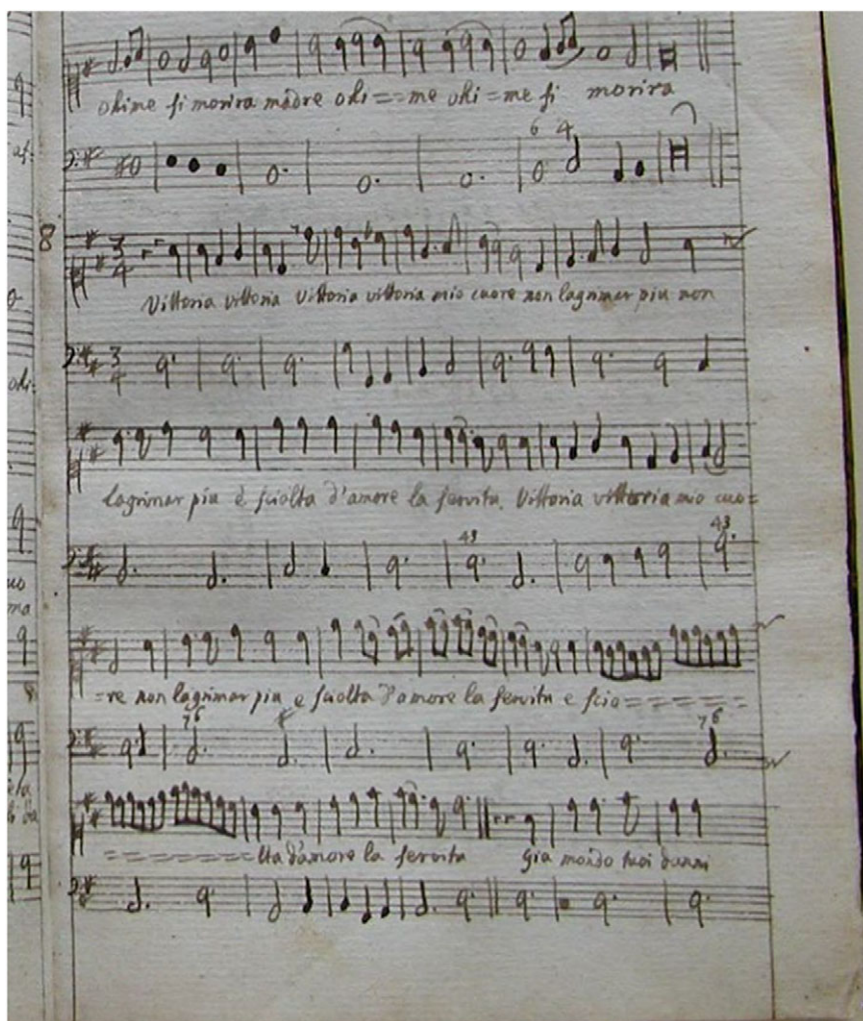 ohime si morira madre ohi==me ohi=me si morira
6 4
8
3 4
Vittoria vittoria Vittoria vittoria mio cuore non lagrimar piu non
3 4
lagrimar piu è sciolta d'amore la servitu. Vittoria vittoria mio cuo=
43 43
=re non lagrimar piu e sciolta d'amore la servitu e scio=======
76 76
=======lta d'amore la servita gia mondo tuoi danni